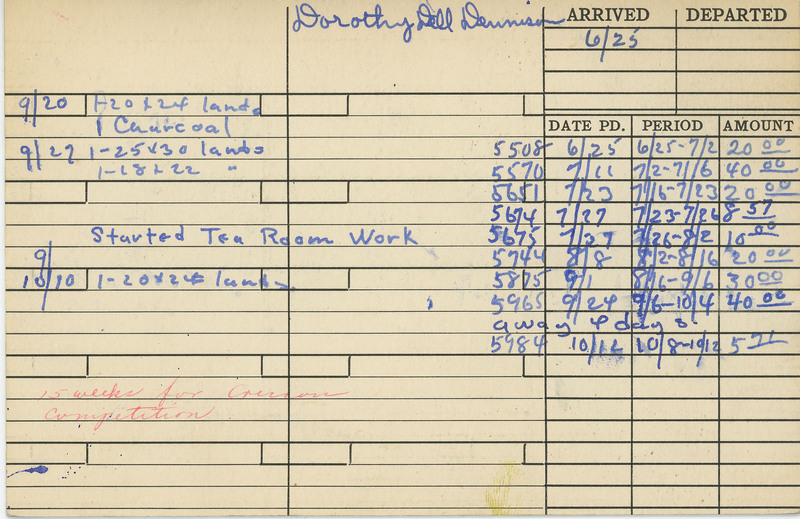 Dorothy Dell Dennison
ARRIVED DEPARTED
6/25
9/20 1-20x24 lands
1 Charcoal
DATE PD. PERIOD AMOUNT
9/27 1-25x30 lands 5508 6/25 6/25-7/2 20 00
1-18x22 " 5570 7/11 7/2-7/16 40 00
5651 7/23 7/16-7/23 20 00
5674 7/27 7/23-7/26 8 57
Started Tea Room Work 5675 7/27 7/26-8/2 10 00
9/ 5744 8/8 8/2-8/16 20 00
10/10 1-20x24 lands 5875 9/1 8/16-9/6 30 00
5965 9/24 9/6-10/4 40 00
away 4 days
5984 10/12 10/8-10/12 5 71
15 weeks for Cresson
Competition